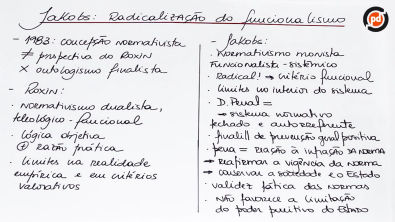 Jakobs: Radicalização do funcionalismo
pd
- 1983: concepção normativista
≠ perspectiva do Roxin
× ontologismo finalista
- Roxin:
• normativismo dualista,
teleológico-funcional
• lógica objetiva
+ razão prática
• limites na realidade
empírica e em critérios
valorativos
- Jakobs:
• Normativismo monista
Funcionalista-sistêmico
• Radical! → critério funcional
• limites no interior do sistema
• D. Penal =
→ sistema normativo
fechado e autorreferente
• finalid de prevenção geral positiva
• pena = reação à infração da norma
→ reafirmar a vigência da norma
→ conservar a sociedade e o Estado
• validez fática das normas
• Não favorece a limitação
do poder punitivo do Estado